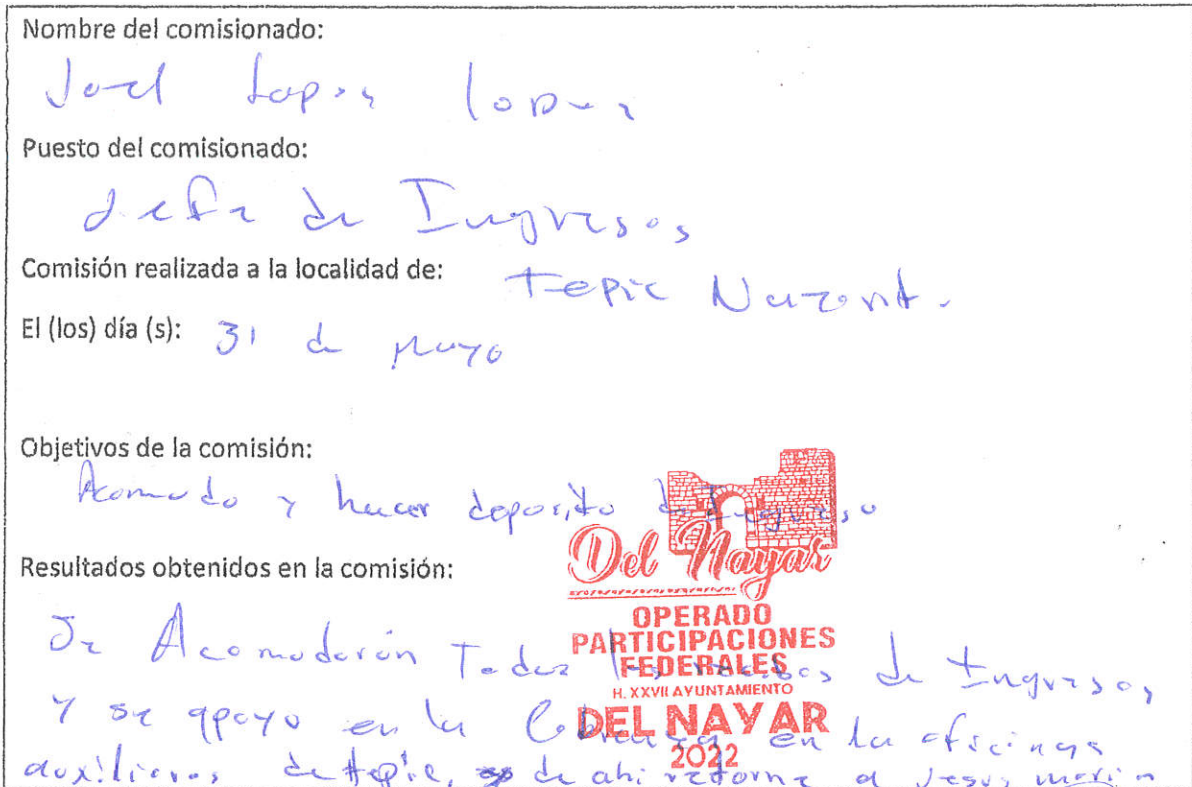 Nombre del comisionado:
Joel Lopez Lopez
Puesto del comisionado:
Jefe de Ingresos
Comisión realizada a la localidad de: Tepic Nayarit.
El (los) día (s): 31 de Mayo
Objetivos de la comisión:
Acomodo y hacer deposito de Ingreso
Del Nayar
Resultados obtenidos en la comisión:
OPERADO
PARTICIPACIONES
FEDERALES
H. XXVII AYUNTAMIENTO
DEL NAYAR
2022
Se Acomodarón Todos los recibos de Ingresos
y se apoyo en la Cobranza en la oficinas
auxiliares de tepic, de ahi retorne a Jesus maria